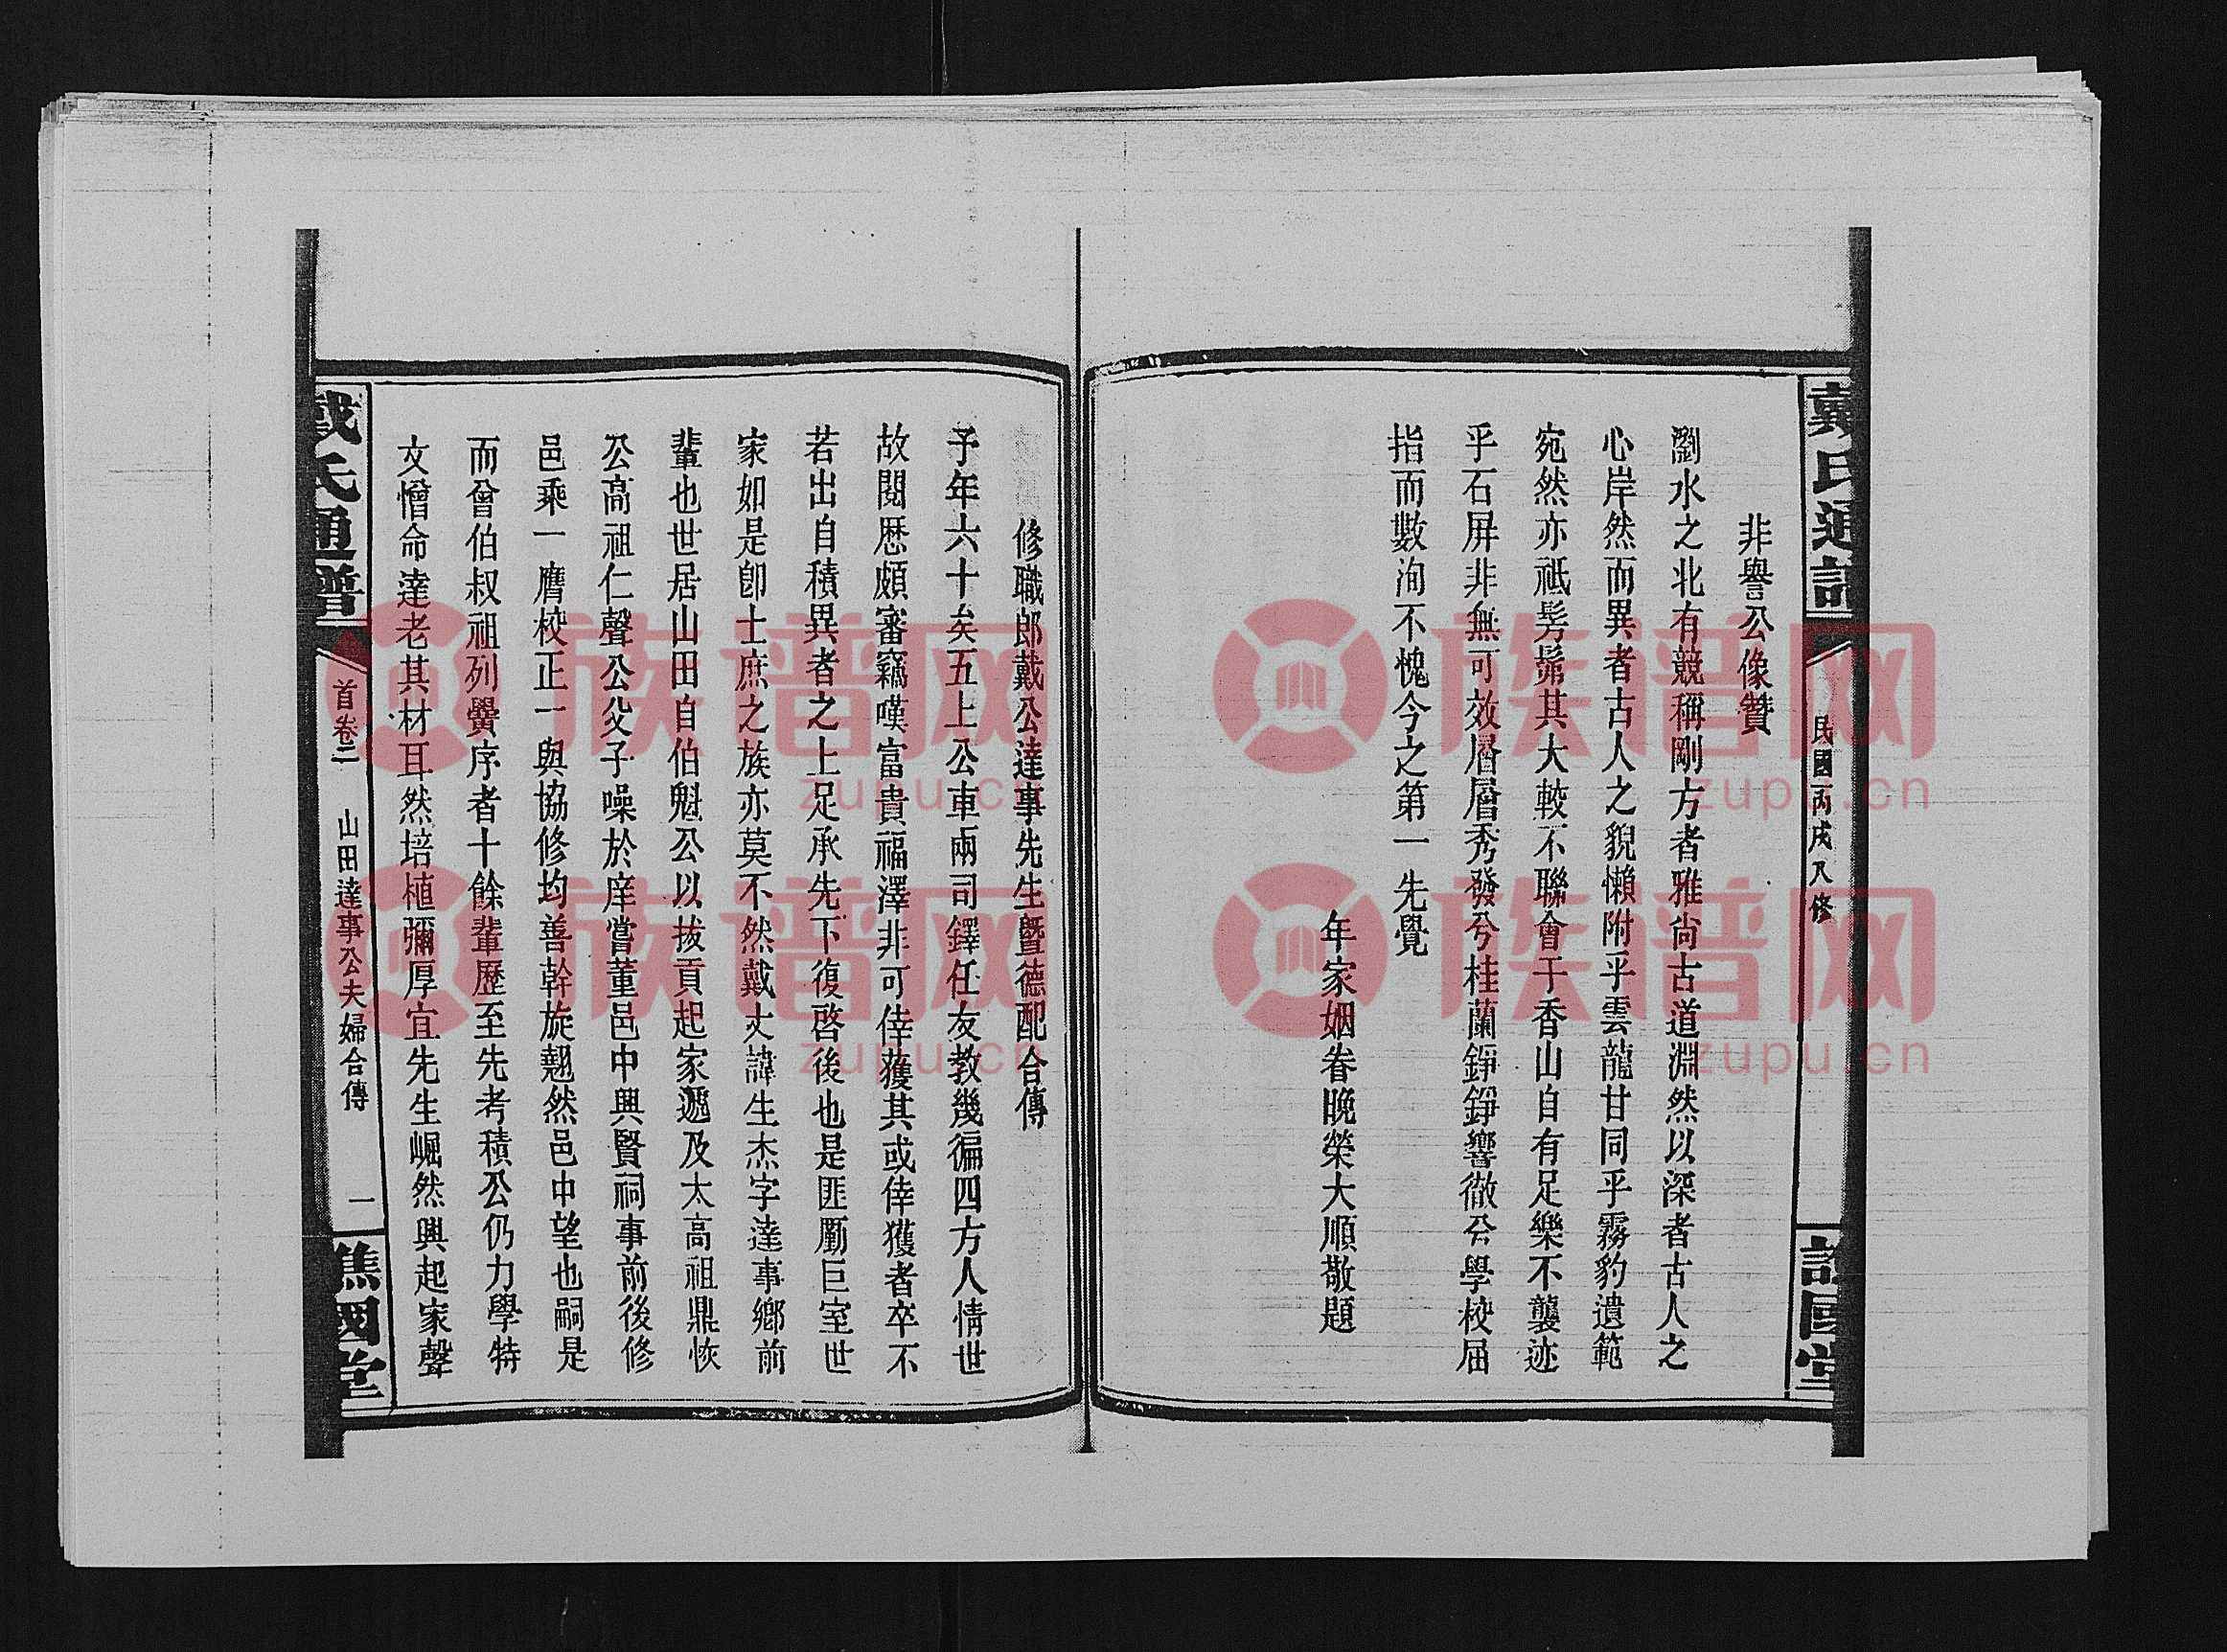 戴氏通譜
民國丙戌八修
譙國堂
非譽公像贊
瀏水之北有競稱剛方者雅尙古道淵然以深者古人之
心岸然而異者古人之貌懶附乎雲龍甘同乎霧豹遺範
宛然亦祗髣髴其大較不聯會于香山自有足樂不襲迹
乎石屏非無可效層層秀發兮桂蘭錚錚響徹兮學校屈
指而數洵不愧今之第一先覺
年家姻眷晚榮大順敬題
修職郎戴公達事先生曁德配合傳
予年六十矣五上公車兩司鐸任友教幾徧四方人情世
故閱歷頗審竊嘆富貴福澤非可倖獲其或倖獲者卒不
若出自積異者之上足承先下復啓後也是匪勵巨室世
家如是卽士庶之族亦莫不然戴丈諱生杰字達事鄉前
輩也世居山田自伯魁公以拔貢起家遞及太高祖鼎恢
公高祖仁聲公父子噪於庠嘗董邑中興賢祠事前後修
邑乘一膺校正一與協修均善幹旋翹然邑中望也嗣是
而曾伯叔祖列黌序者十餘輩歷至先考積公仍力學特
文憎命達老其材耳然培植彌厚宜先生崛然興起家聲
戴氏通譜
首卷二
山田達事公夫婦合傳
一
譙國堂
族譜网
zupu.cn
族譜网
zupu.cn
族譜网
zupu.cn
族譜网
zupu.cn